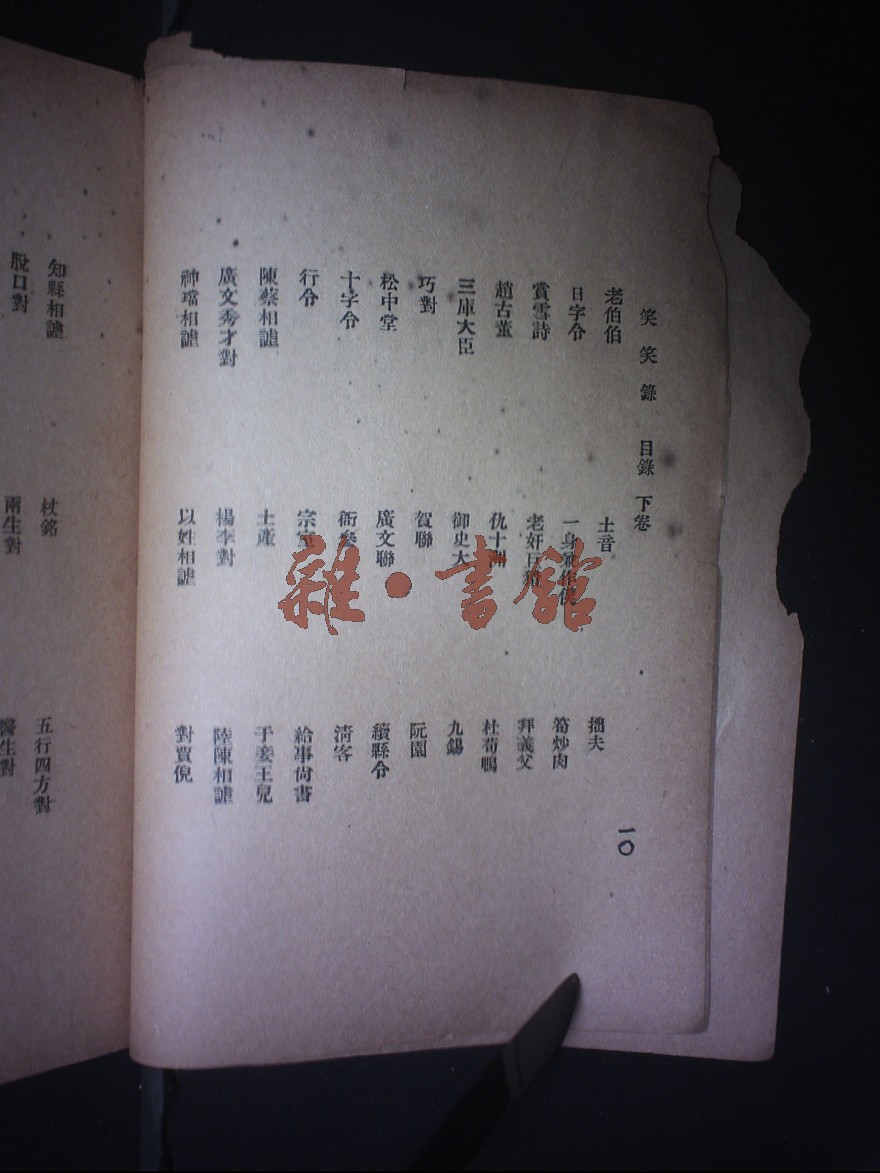 笑笑錄 目錄 下卷 一〇
老伯伯 土音 拙夫
日字令 一身兼作 筍炒肉
賞雪詩 老奸巨猾 拜義父
趙古董 仇十洲 杜荀鴨
三庫大臣 御史大 九錫
巧對 賀聯 阮圓
松中堂 廣文聯 續縣令
十字令 衙參 清客
行令 宗室 給事尙書
陳蔡相謔 土產 于妾王兒
廣文秀才對 楊李對 陸陳相謔
神璫相謔 以姓相謔 對賈倪
知縣相謔 杖銘 五行四方對
脫口對 兩生對 醫生對
雜·書館